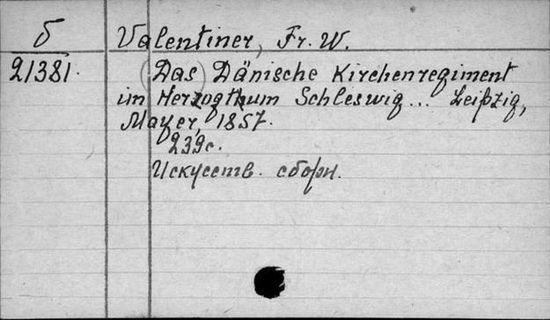 б Valentiner, Fr. W.
21381. (Das) Dänische Kirchenregiment
im Herzogthum Schleswig... Leipzig,
Mayer, 1857.
239с.
Искусств. сборн.